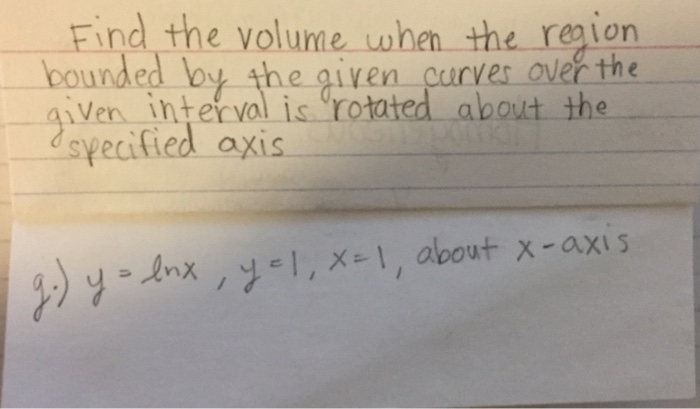 Find the volume when the region
bounded by the given curves over the
given interval is rotated about the
specified axis
g.) y = lnx , y = 1, x = 1, about x-axis